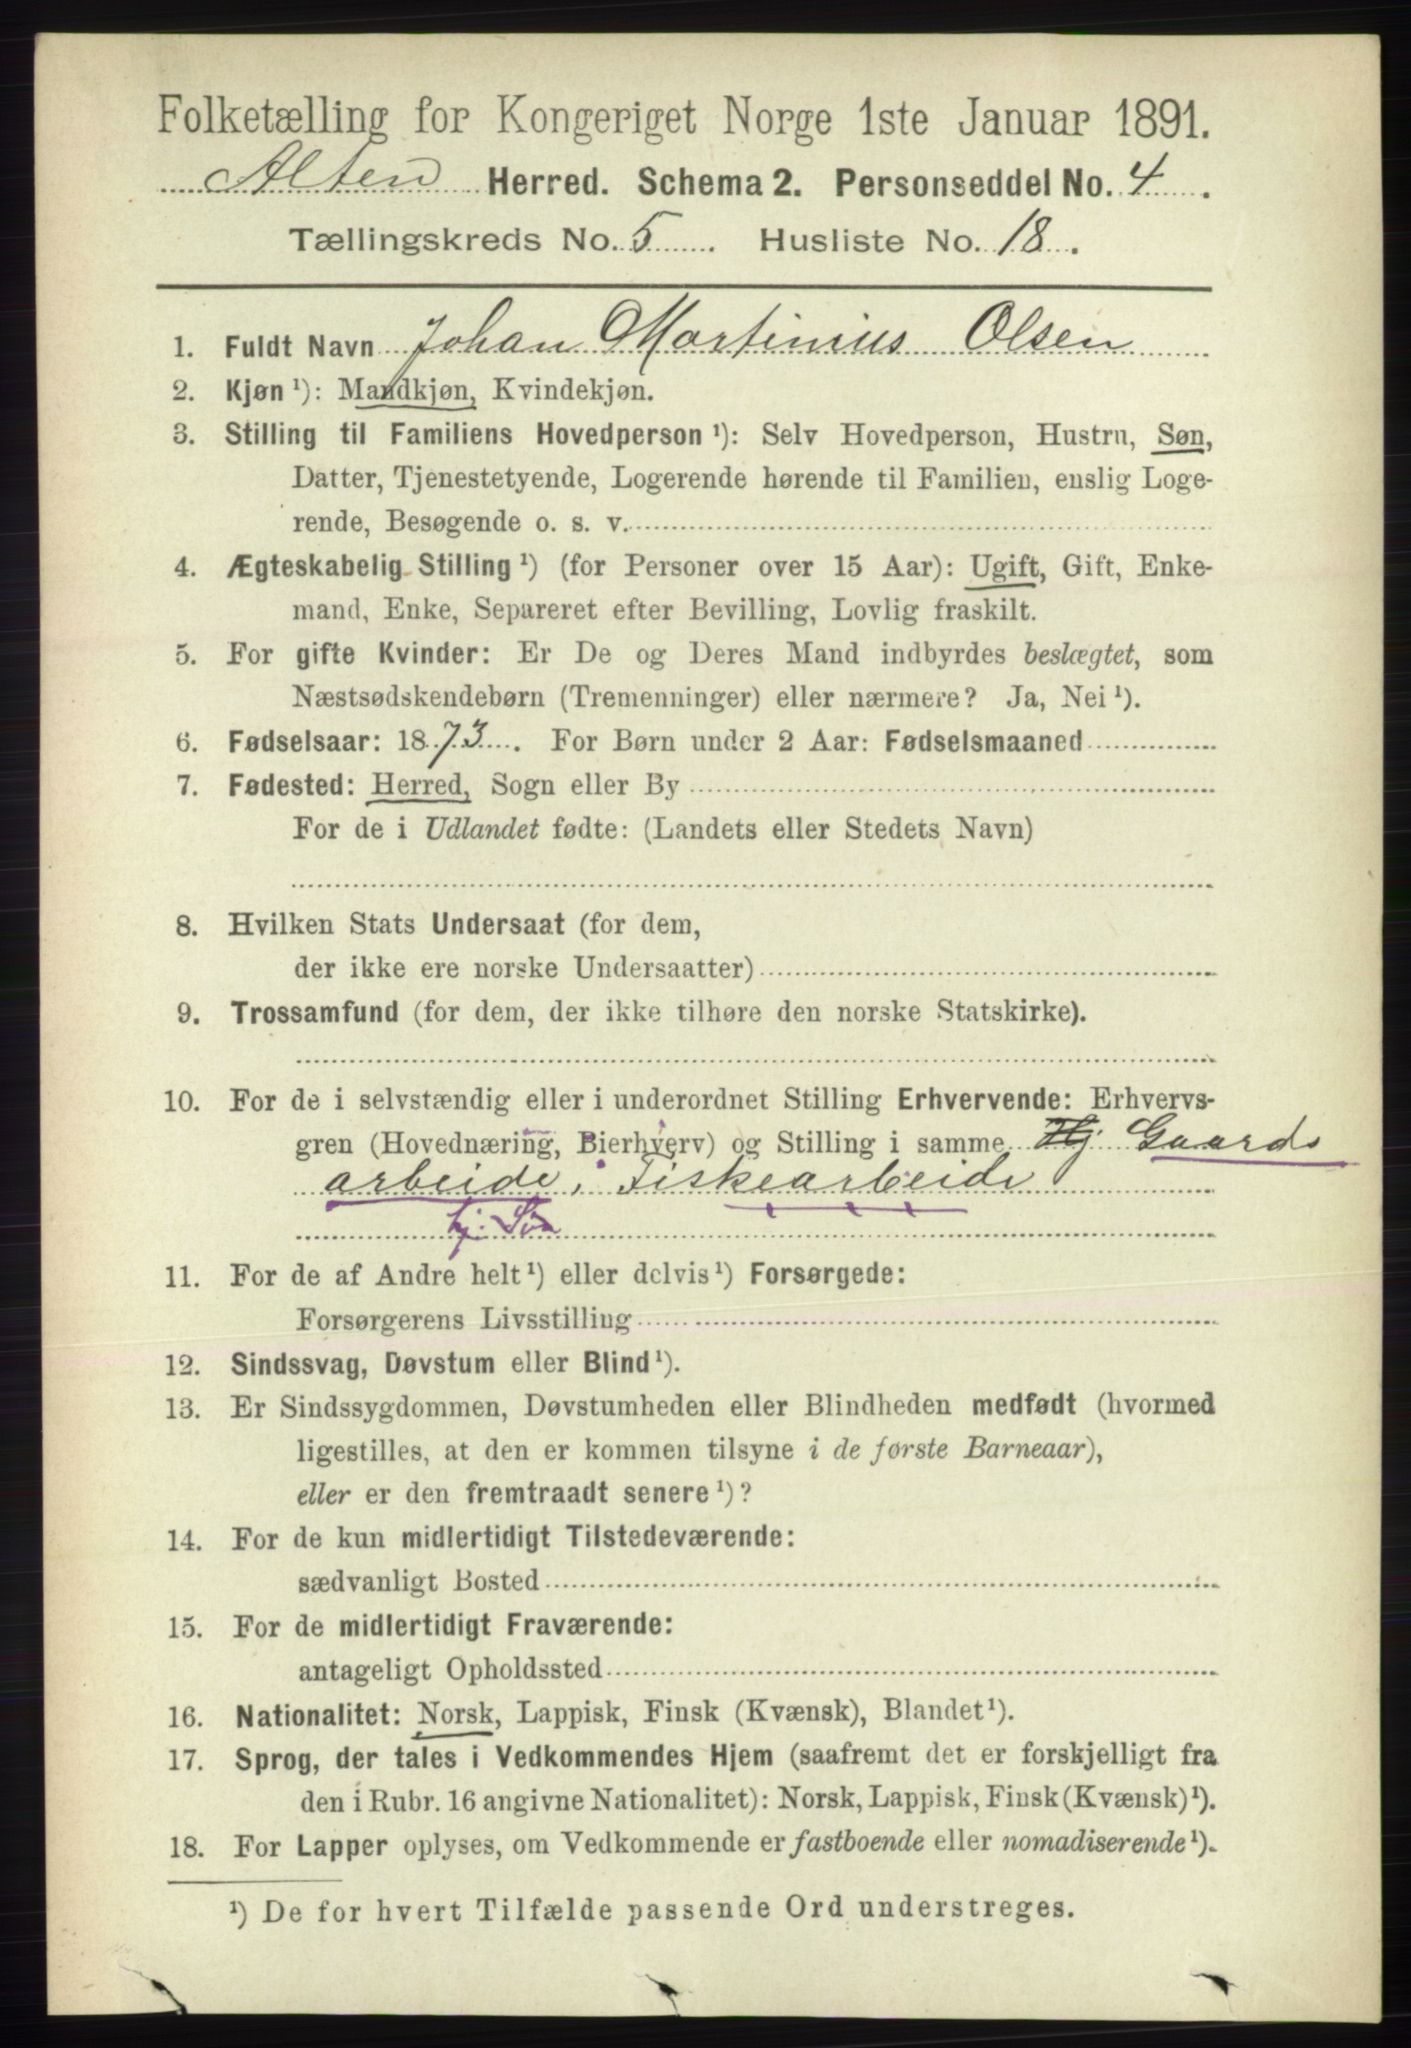 Folketælling for Kongeriget Norge 1ste Januar 1891.
Alten Herred. Schema 2. Personseddel No. 4.
Tællingskreds No. 5. Husliste No. 18.
1. Fuldt Navn Johan Martinius Olsen
2. Kjøn ¹): Mandkjøn, Kvindekjøn.
3. Stilling til Familiens Hovedperson ¹): Selv Hovedperson, Hustru, Søn,
Datter, Tjenestetyende, Logerende hørende til Familien, enslig Loge-
rende, Besøgende o. s. v.
4. Ægteskabelig Stilling ¹) (for Personer over 15 Aar): Ugift, Gift, Enke-
mand, Enke, Separeret efter Bevilling, Lovlig fraskilt.
5. For gifte Kvinder: Er De og Deres Mand indbyrdes beslægtet, som
Næstsødskendebørn (Tremenninger) eller nærmere? Ja, Nei ¹).
6. Fødselsaar: 1873. For Børn under 2 Aar: Fødselsmaaned
7. Fødested: Herred, Sogn eller By
For de i Udlandet fødte: (Landets eller Stedets Navn)
8. Hvilken Stats Undersaat (for dem,
der ikke ere norske Undersaatter)
9. Trossamfund (for dem, der ikke tilhøre den norske Statskirke).
10. For de i selvstændig eller i underordnet Stilling Erhvervende: Erhvervs-
gren (Hovednæring, Bierhverv) og Stilling i samme Hj Gaards
arbeide, Fiskearbeide
hj. Søn
11. For de af Andre helt ¹) eller delvis ¹) Forsørgede:
Forsørgerens Livsstilling
12. Sindssvag, Døvstum eller Blind ¹).
13. Er Sindssygdommen, Døvstumheden eller Blindheden medfødt (hvormed
ligestilles, at den er kommen tilsyne i de første Barneaar),
eller er den fremtraadt senere ¹)?
14. For de kun midlertidigt Tilstedeværende:
sædvanligt Bosted
15. For de midlertidigt Fraværende:
antageligt Opholdssted
16. Nationalitet: Norsk, Lappisk, Finsk (Kvænsk), Blandet ¹).
17. Sprog, der tales i Vedkommendes Hjem (saafremt det er forskjelligt fra
den i Rubr. 16 angivne Nationalitet): Norsk, Lappisk, Finsk (Kvænsk) ¹).
18. For Lapper oplyses, om Vedkommende er fastboende eller nomadiserende ¹).
¹) De for hvert Tilfælde passende Ord understreges.